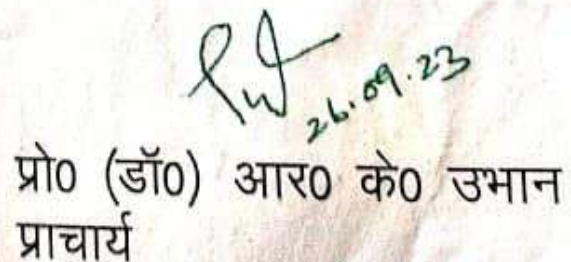 26.09.23
प्रो0 (डॉ0) आर0 के0 उभान
प्राचार्य